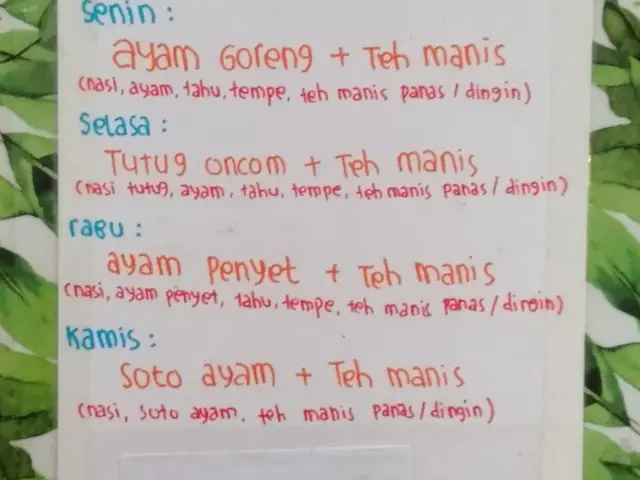 Senin :
ayam Goreng + Teh manis
(nasi, ayam, tahu, tempe, teh manis panas / dingin)
Selasa :
Tutug oncom + Teh manis
(nasi tutug, ayam, tahu, tempe, teh manis panas / dingin)
raBu :
ayam penyet + Teh manis
(nasi, ayam penyet, tahu, tempe, teh manis panas / dingin)
Kamis :
Soto ayam + Teh manis
(nasi, soto ayam, teh manis panas / dingin)